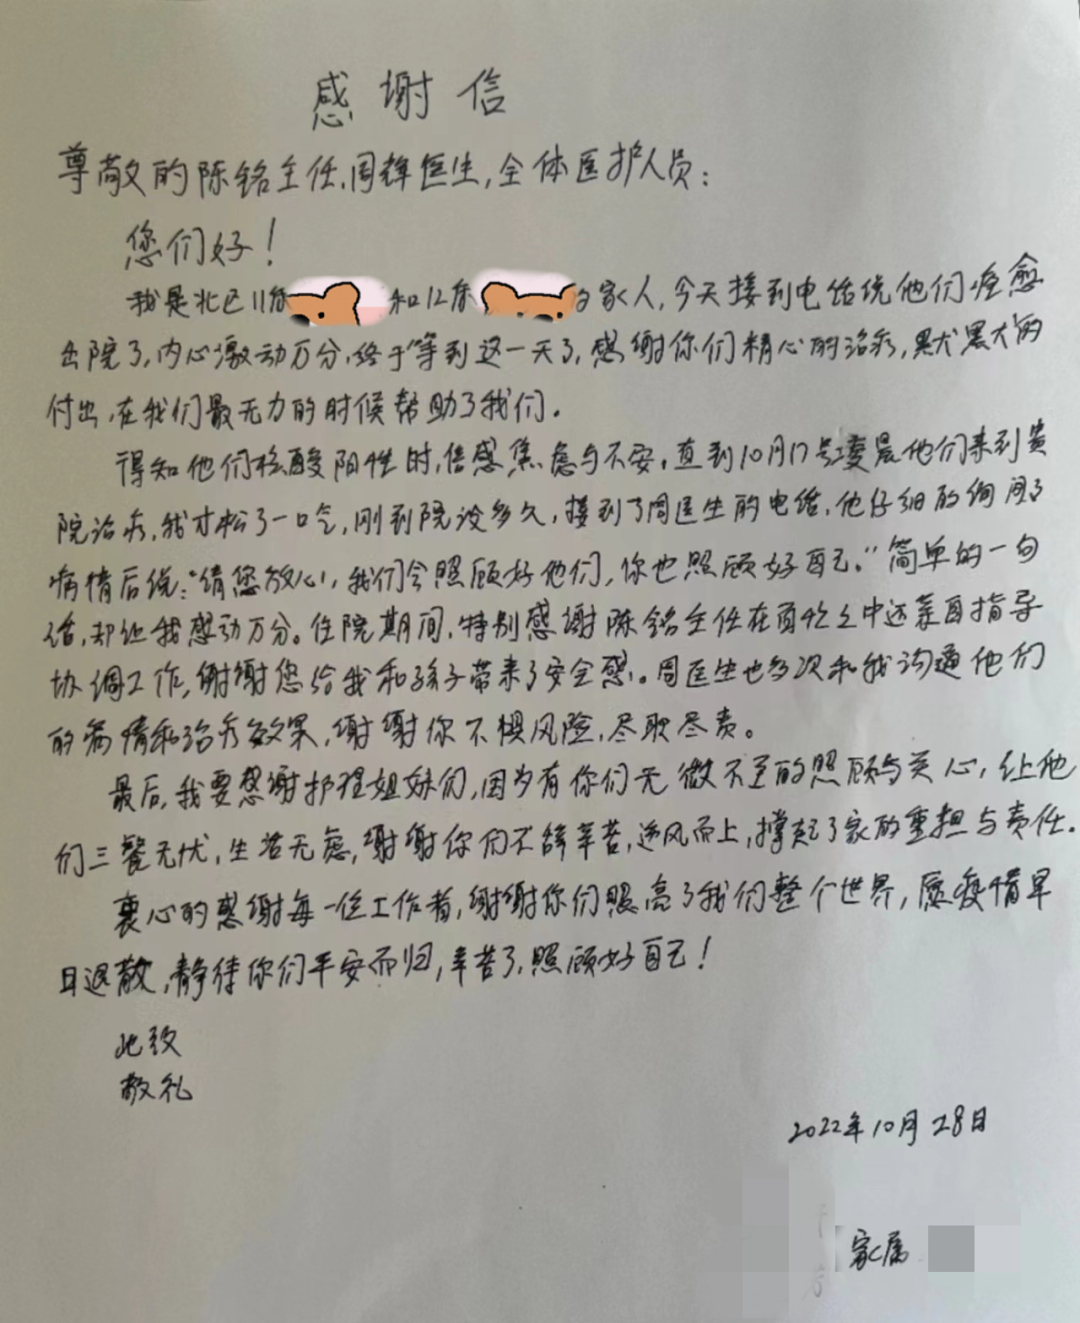 感谢信
尊敬的陈铭主任、周锋医生,全体医护人员:
您们好!
我是北区11床 和12床 的家人,今天接到电话说他们痊愈
出院了,内心激动万分,终于等到这一天了,感谢你们精心的治疗,默默的
付出,在我们最无力的时候帮助了我们。
得知他们核酸阳性时,倍感焦虑与不安。直到10月17号凌晨他们来到贵
院治疗,我才松了一口气,刚到院没多久,接到了周医生的电话,他仔细的询问了
病情后说:"请您放心,我们会照顾好他们,你也照顾好自己。"简单的一句
话,却让我感动万分。住院期间,特别感谢陈铭主任在百忙之中还亲自指导
协调工作,谢谢您给我和孩子带来了安全感。周医生也多次和我沟通他们
的病情和治疗效果,谢谢你不惧风险,尽职尽责。
最后,我要感谢护理姐妹们,因为有你们无微不至的照顾与关心,让他
们三餐无忧,生活无虑,谢谢你们不辞辛苦,逆风而上,撑起了家的重担与责任.
衷心的感谢每一位工作者,谢谢你们照亮了我们整个世界,愿疫情早
日退散,静待你们平安而归,辛苦了,照顾好自己!
此致
敬礼
2022年10月28日
家属